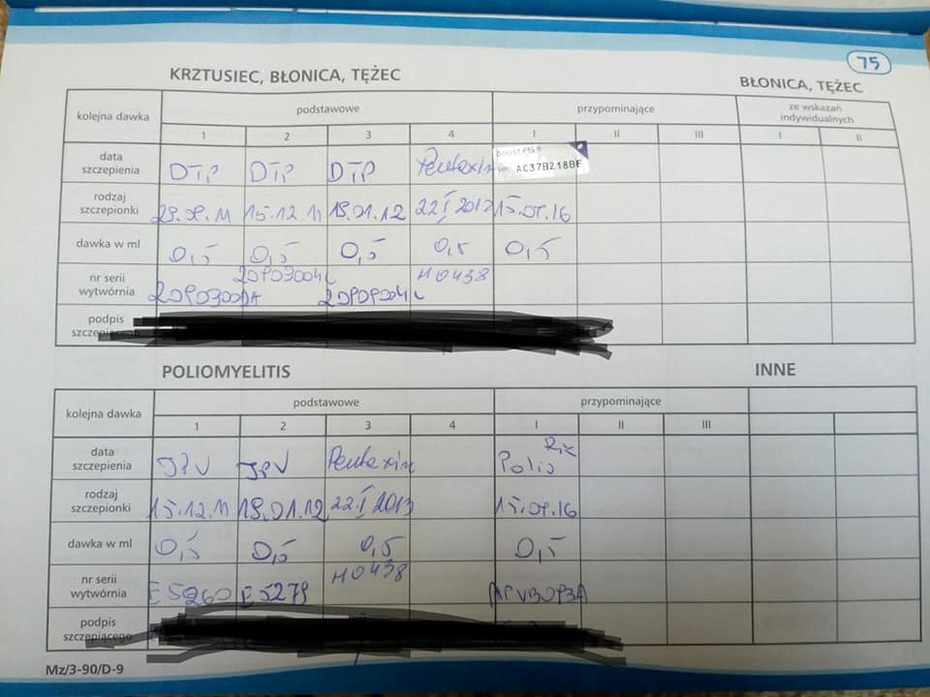 75
KRZTUSIEC, BŁONICA, TĘŻEC
BŁONICA, TĘŻEC
kolejna dawka podstawowe przypominające ze wskazań indywidualnych
1 2 3 4 I II III I II
data szczepienia DTP DTP DTP Pentaxim AC37B218BF
rodzaj szczepionki 15.12.11 18.01.12 22 I 2013
dawka w ml 0,5 0,5 0,5 0,5 0,5
nr serii wytwórnia H0438
podpis szczepiącego
POLIOMYELITIS
INNE
kolejna dawka podstawowe przypominające
1 2 3 4 I II III
data szczepienia IPV IPV Pentaxim Polio
rodzaj szczepionki 15.12.11 18.01.12 22.I 2013
dawka w ml 0,5 0,5 0,5 0,5
nr serii wytwórnia E5260 E5279 H0438
podpis szczepiącego
Mz/3-90/D-9